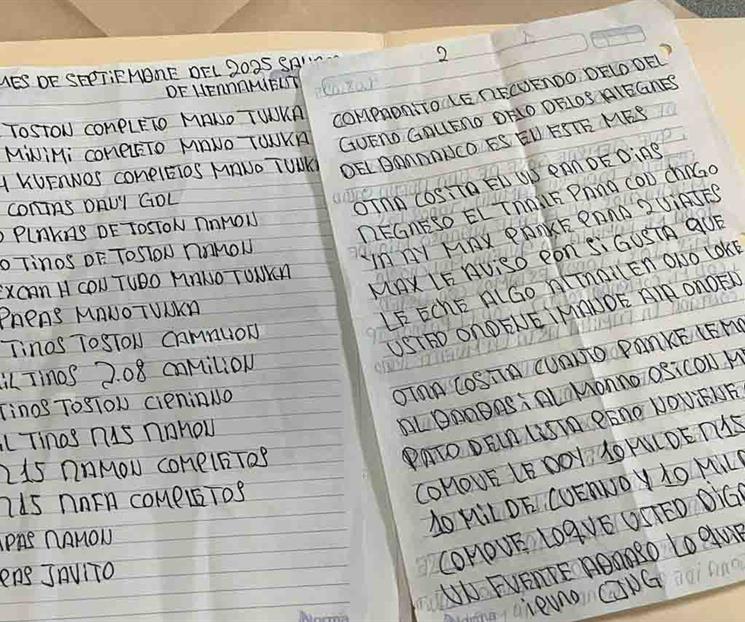 MES DE SEPTIEMBRE DEL 2025
DE HERRAMIENT
TOSTON COMPLETO MANO TUNKA
MINIMI COMPLETO MANO TUNKA
4 KUERNOS COMPLETOS MANO TUNK
CONTAS DAVY GOL
PLAKAS DE TOSTON RAMON
TIROS DE TOSTON RAMON
EXCAR H CON TUBO MANO TUNKA
PAPAS MANO TUNKA
TIROS TOSTON CAMALION
IL TIROS 2.08 CAMILION
TIROS TOSTON CIPRIANO
L TIROS R15 RAMON
R15 RAMON COMPLETOS
R15 RAFA COMPLETOS
PAPAS RAMON
PAS JAVITO
Norma
2
COMPADRITO LE RECUERDO DELO DEL
GUERO GALLERO DELO DELOS ALEGRES
DEL BARRANCO ES EN ESTE MES
OTRA COSITA EN UN PAR DE DIAS
REGRESO EL TRAILE PARA CON CHAGO
YA AY MAX PARKE PARA 2 VIAJES
MAX LE AVISO POR SI GUSTA QUE
LE ECHE ALGO AL TRAILER ONO LOKE
USTED ORDENE IMANDE APA ORDEN
OTRA COSITA CUANTO PARKE LE MA
AL BARBAS I AL MORRO OSICON M
PATO DELA LISTA PERO NOVIENE
COMOVE LE DOY 10 MIL DE R15
10 MIL DE CUERNO Y 10 MIL
COMOVE LOQUE USTED DIGA
UN FUERTE ABRAZO LO QUIE
CJNG
Norma